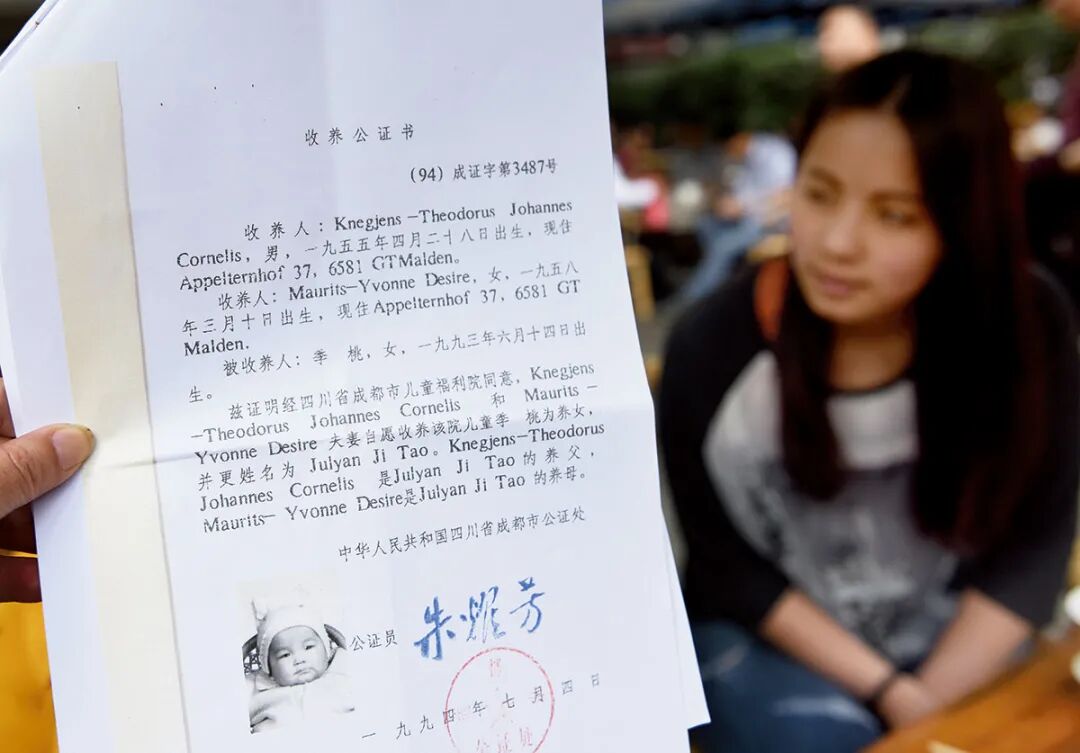 收养公证书
(94) 成证字第3487号
收养人：Knegjens-Theodorus Johannes
Cornelis, 男, 一九五五年四月二十八日出生, 现住
Appelternhof 37, 6581 GTMalden.
收养人：Maurits-Yvonne Desire, 女, 一九五八
年三月十日出生, 现住Appelternhof 37, 6581 GT
Malden.
被收养人：季 桃, 女, 一九九三年六月十四日出
生。
兹证明经四川省成都市儿童福利院同意, Knegjens
-Theodorus Johannes Cornelis 和 Maurits-
Yvonne Desire 夫妻自愿收养该院儿童季 桃为养女,
并更姓名为 Julyan Ji Tao。Knegjens-Theodorus
Johannes Cornelis 是Julyan Ji Tao 的养父,
Maurits- Yvonne Desire是Julyan Ji Tao 的养母。
中华人民共和国四川省成都市公证处
公证员 朱 芳
一九九四年七月四日
公证员